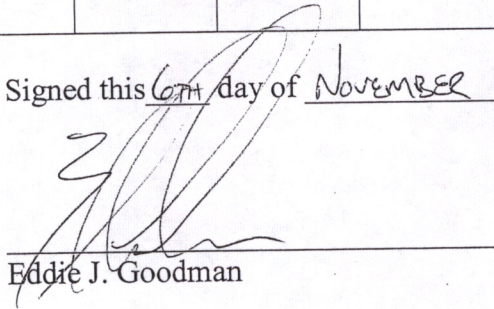 Signed this 6TH day of NOVEMBER
Eddie J. Goodman